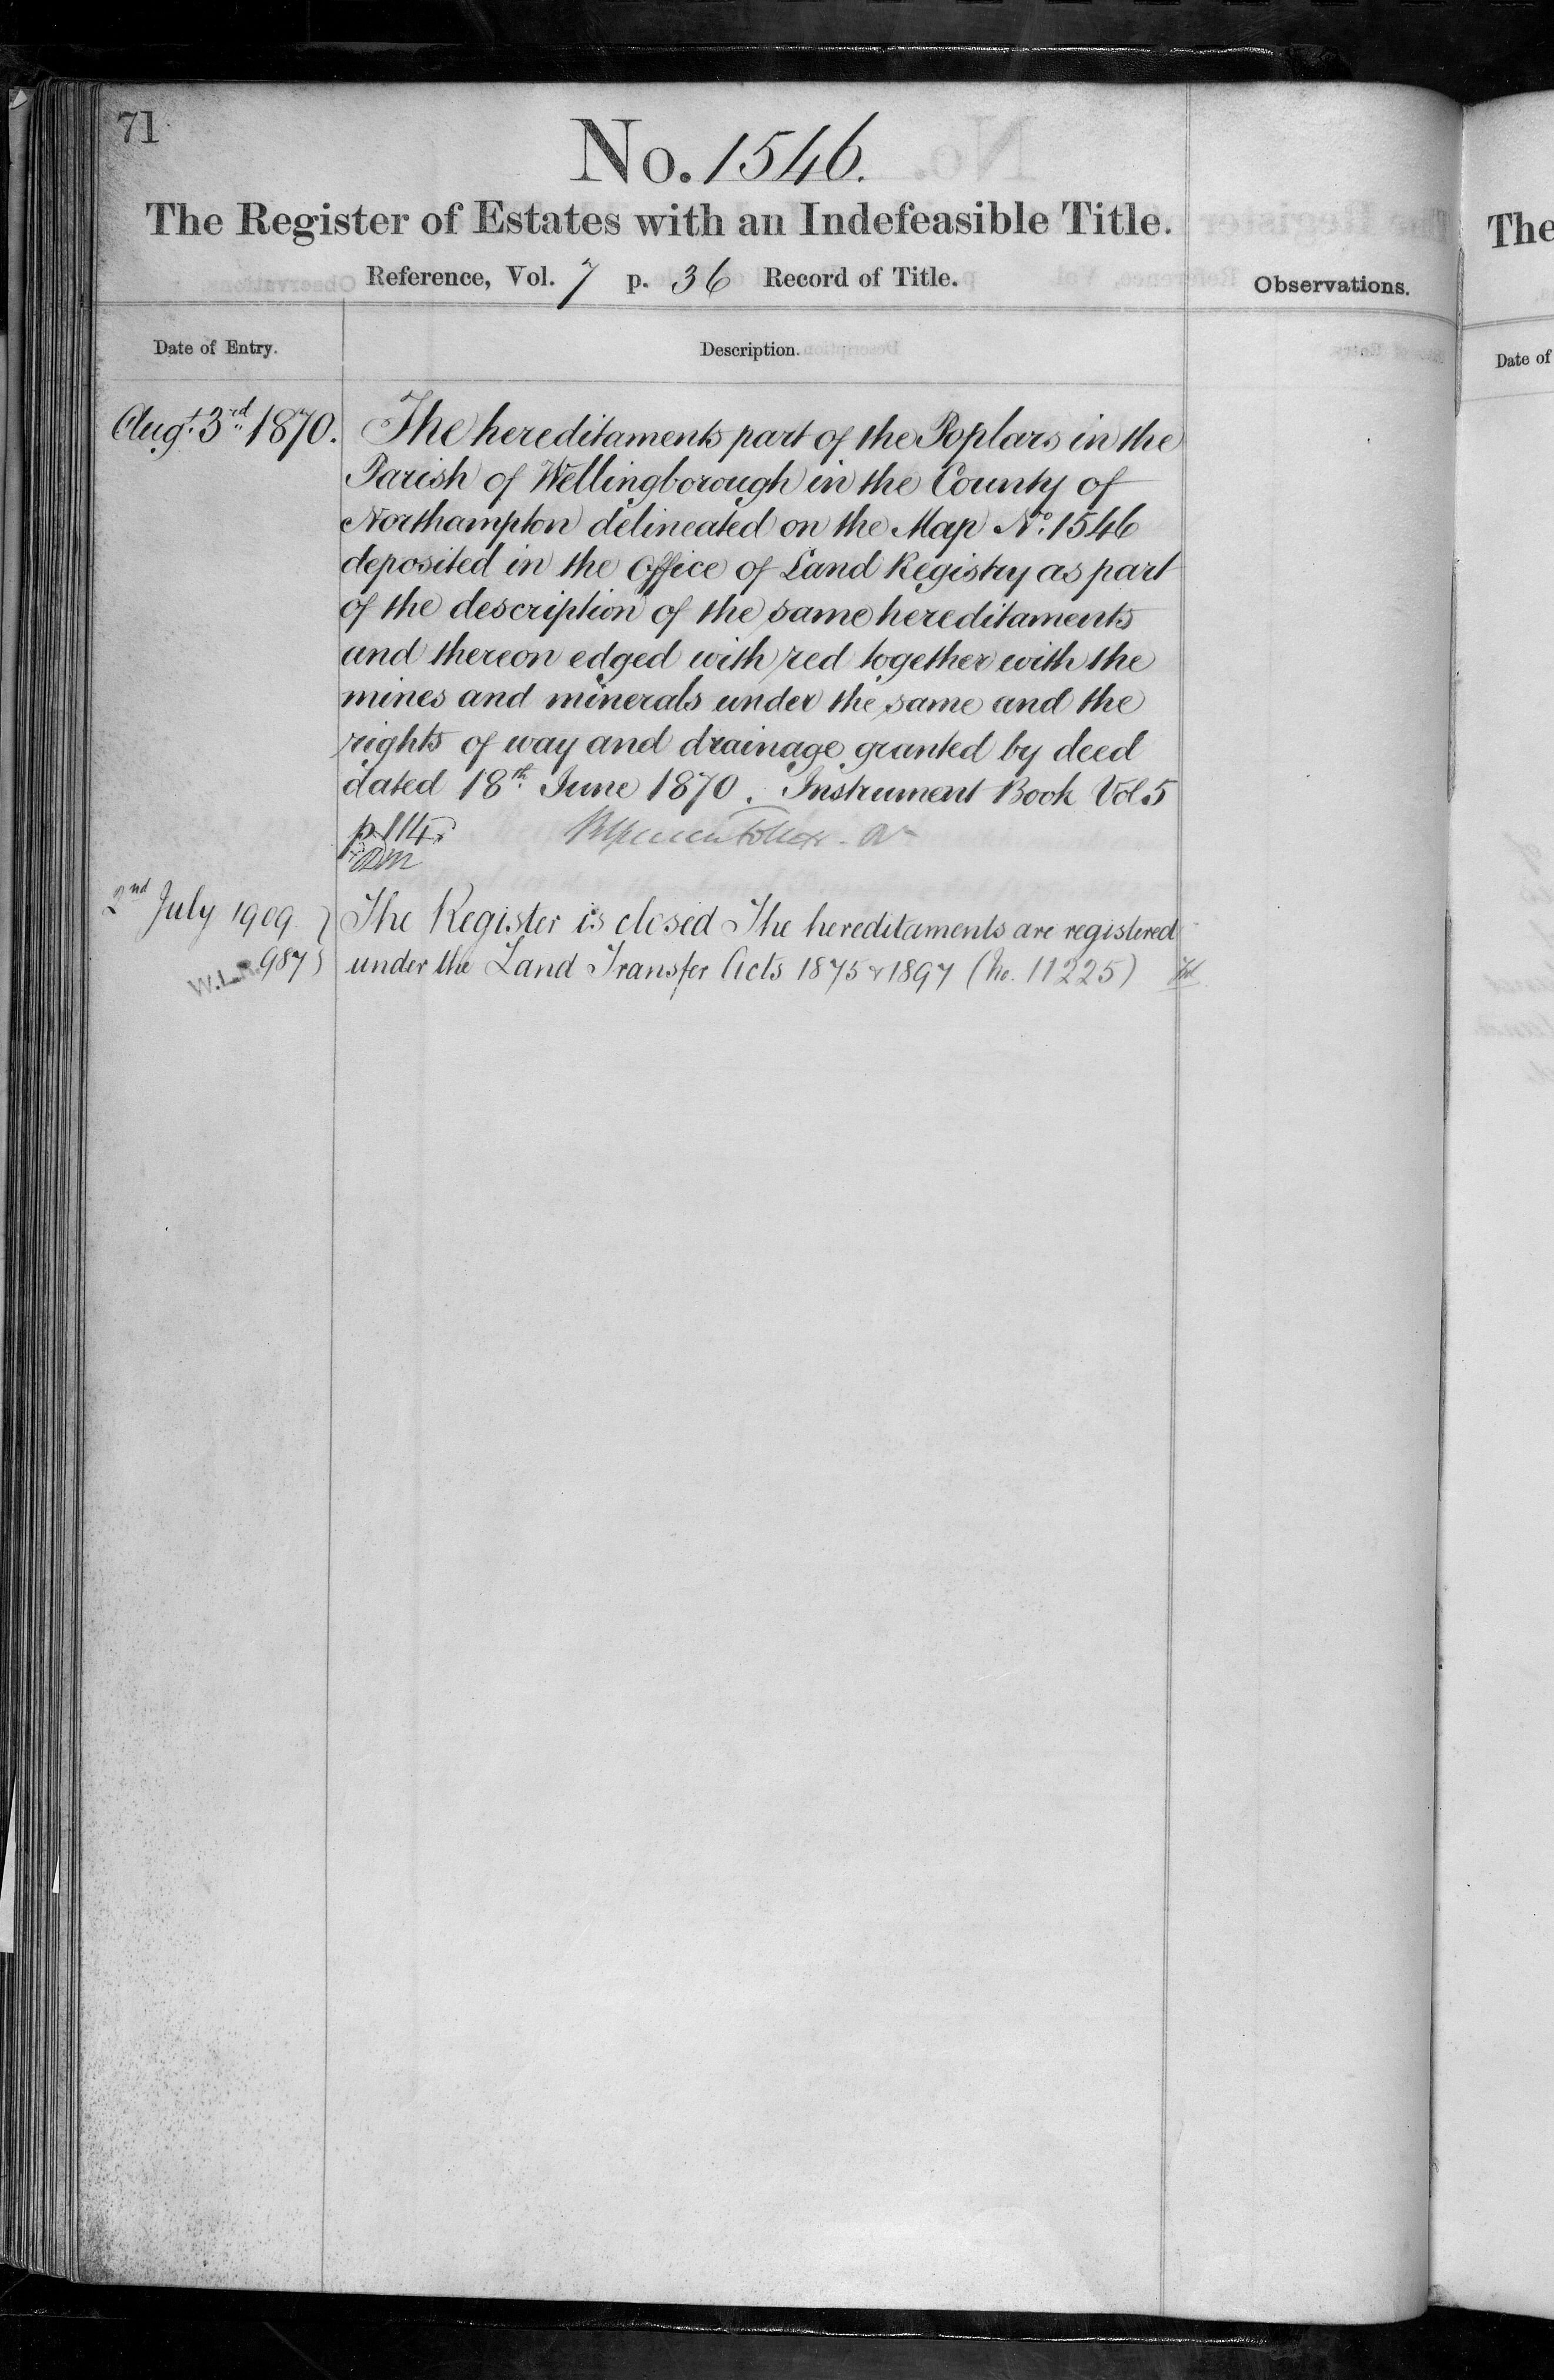 71
No. 1546.
The Register of Estates with an Indefeasible Title.
Reference, Vol. 7 p. 36 Record of Title.
Observations.
Date of Entry.
Description.
Augt. 3rd 1870.
The hereditaments part of the Poplars in the
Parish of Wellingborough in the County of
Northampton delineated on the Map No. 1546
deposited in the Office of Land Registry as part
of the description of the same hereditaments
and thereon edged with red together with the
mines and minerals under the same and the
rights of way and drainage granted by deed
dated 18th June 1870. Instrument Book Vol. 5
p. 114.
2nd July 1909
W.L.R. 987
The Register is closed The hereditaments are registered
under the Land Transfer Acts 1875 & 1897 (No. 11225)
The
Date of